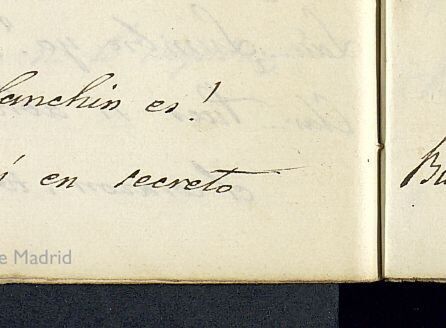 lanchin es!
í en secreto
Bu
e Madrid